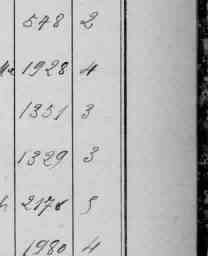 548 2
1928 4
1351 3
1329 3
2178 5
1980 4